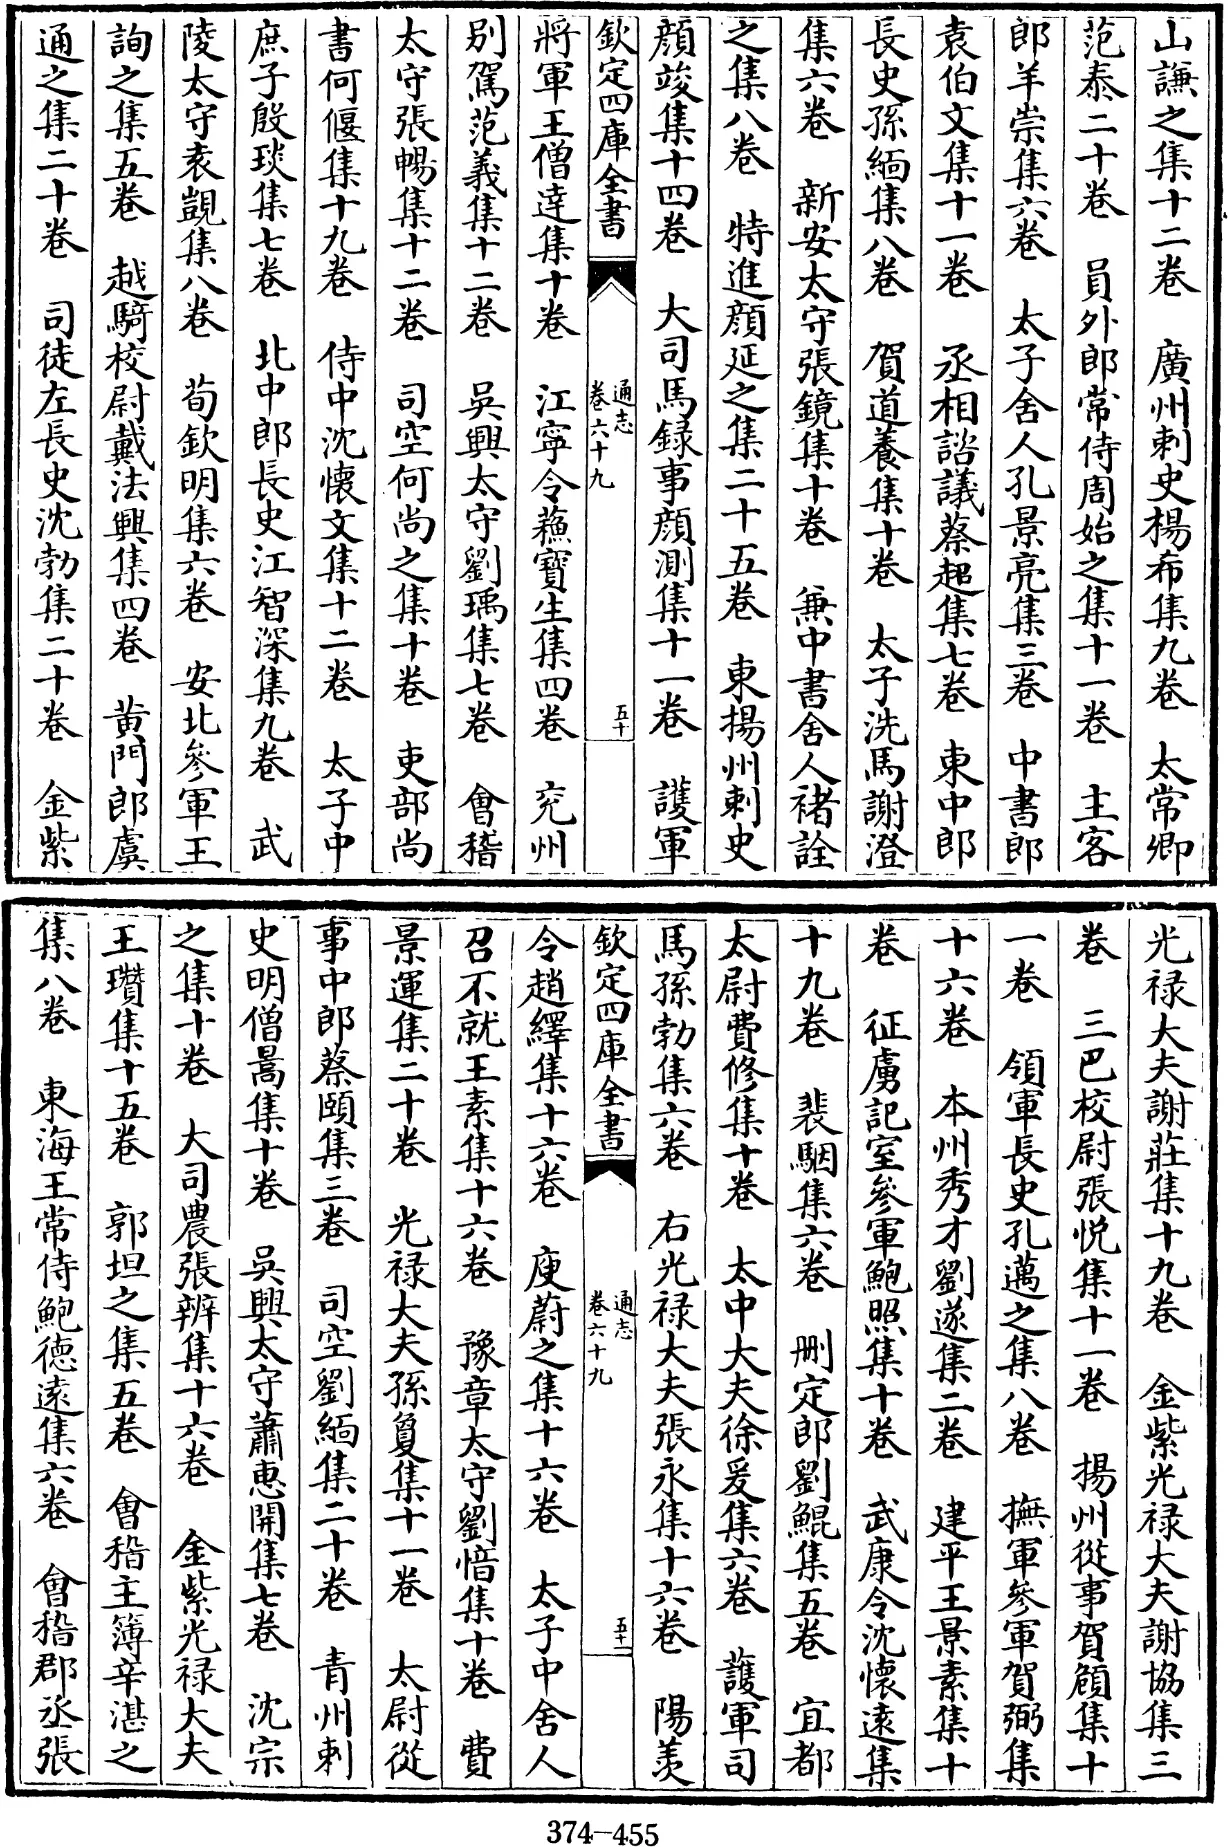 山謙之集十二卷　廣州刺史楊希集九卷　太常卿
范泰二十卷　員外郎常侍周始之集十一卷　主客
郎羊崇集六卷　太子舍人孔景亮集三卷　中書郎
袁伯文集十一卷　丞相諮議蔡超集七卷　東中郎
長史孫緬集八卷　賀道養集十卷　太子洗馬謝澄
集六卷　新安太守張鏡集十卷　兼中書舍人褚詮
之集八卷　特進顔延之集二十五卷　東揚州刺史
顔竣集十四卷　大司馬録事顔測集十一卷　護軍
欽定四庫全書　通志卷六十九　五十
將軍王僧達集十卷　江寧令蘓寶生集四卷　兖州
别駕范義集十二卷　吳興太守劉瑀集七卷　會稽
太守張暢集十二卷　司空何尚之集十卷　吏部尚
書何偃集十九卷　侍中沈懐文集十二卷　太子中
庶子殷琰集七卷　北中郎長史江智深集九卷　武
陵太守袁覬集八卷　荀欽明集六卷　安北參軍王
詢之集五卷　越騎校尉戴法興集四卷　黄門郎虞
通之集二十卷　司徒左長史沈勃集二十卷　金紫
光禄大夫謝莊集十九卷　金紫光禄大夫謝協集三
卷　三巴校尉張悦集十一卷　揚州從事賀頠集十
一卷　領軍長史孔邁之集八卷　撫軍參軍賀弼集
十六卷　本州秀才劉遂集二卷　建平王景素集十
卷　征虜記室參軍鮑照集十卷　武康令沈懐遠集
十九卷　裴駰集六卷　刪定郎劉鯤集五卷　宜都
太尉費修集十卷　太中大夫徐爰集六卷　護軍司
馬孫勃集六卷　右光禄大夫張永集十六卷　陽羡
欽定四庫全書　通志卷六十九　五十一
令趙繹集十六卷　庾蔚之集十六卷　太子中舍人
召不就王素集十六卷　豫章太守劉愔集十卷　費
景運集二十卷　光禄大夫孫夐集十一卷　太尉從
事中郎蔡頤集三卷　司空劉緬集二十卷　青州刺
史明僧暠集十卷　吳興太守蕭惠開集七卷　沈宗
之集十卷　大司農張辨集十六卷　金紫光禄大夫
王瓚集十五卷　郭坦之集五卷　會稽主簿辛湛之
集八卷　東海王常侍鮑德遠集六卷　會稽郡丞張
374-455